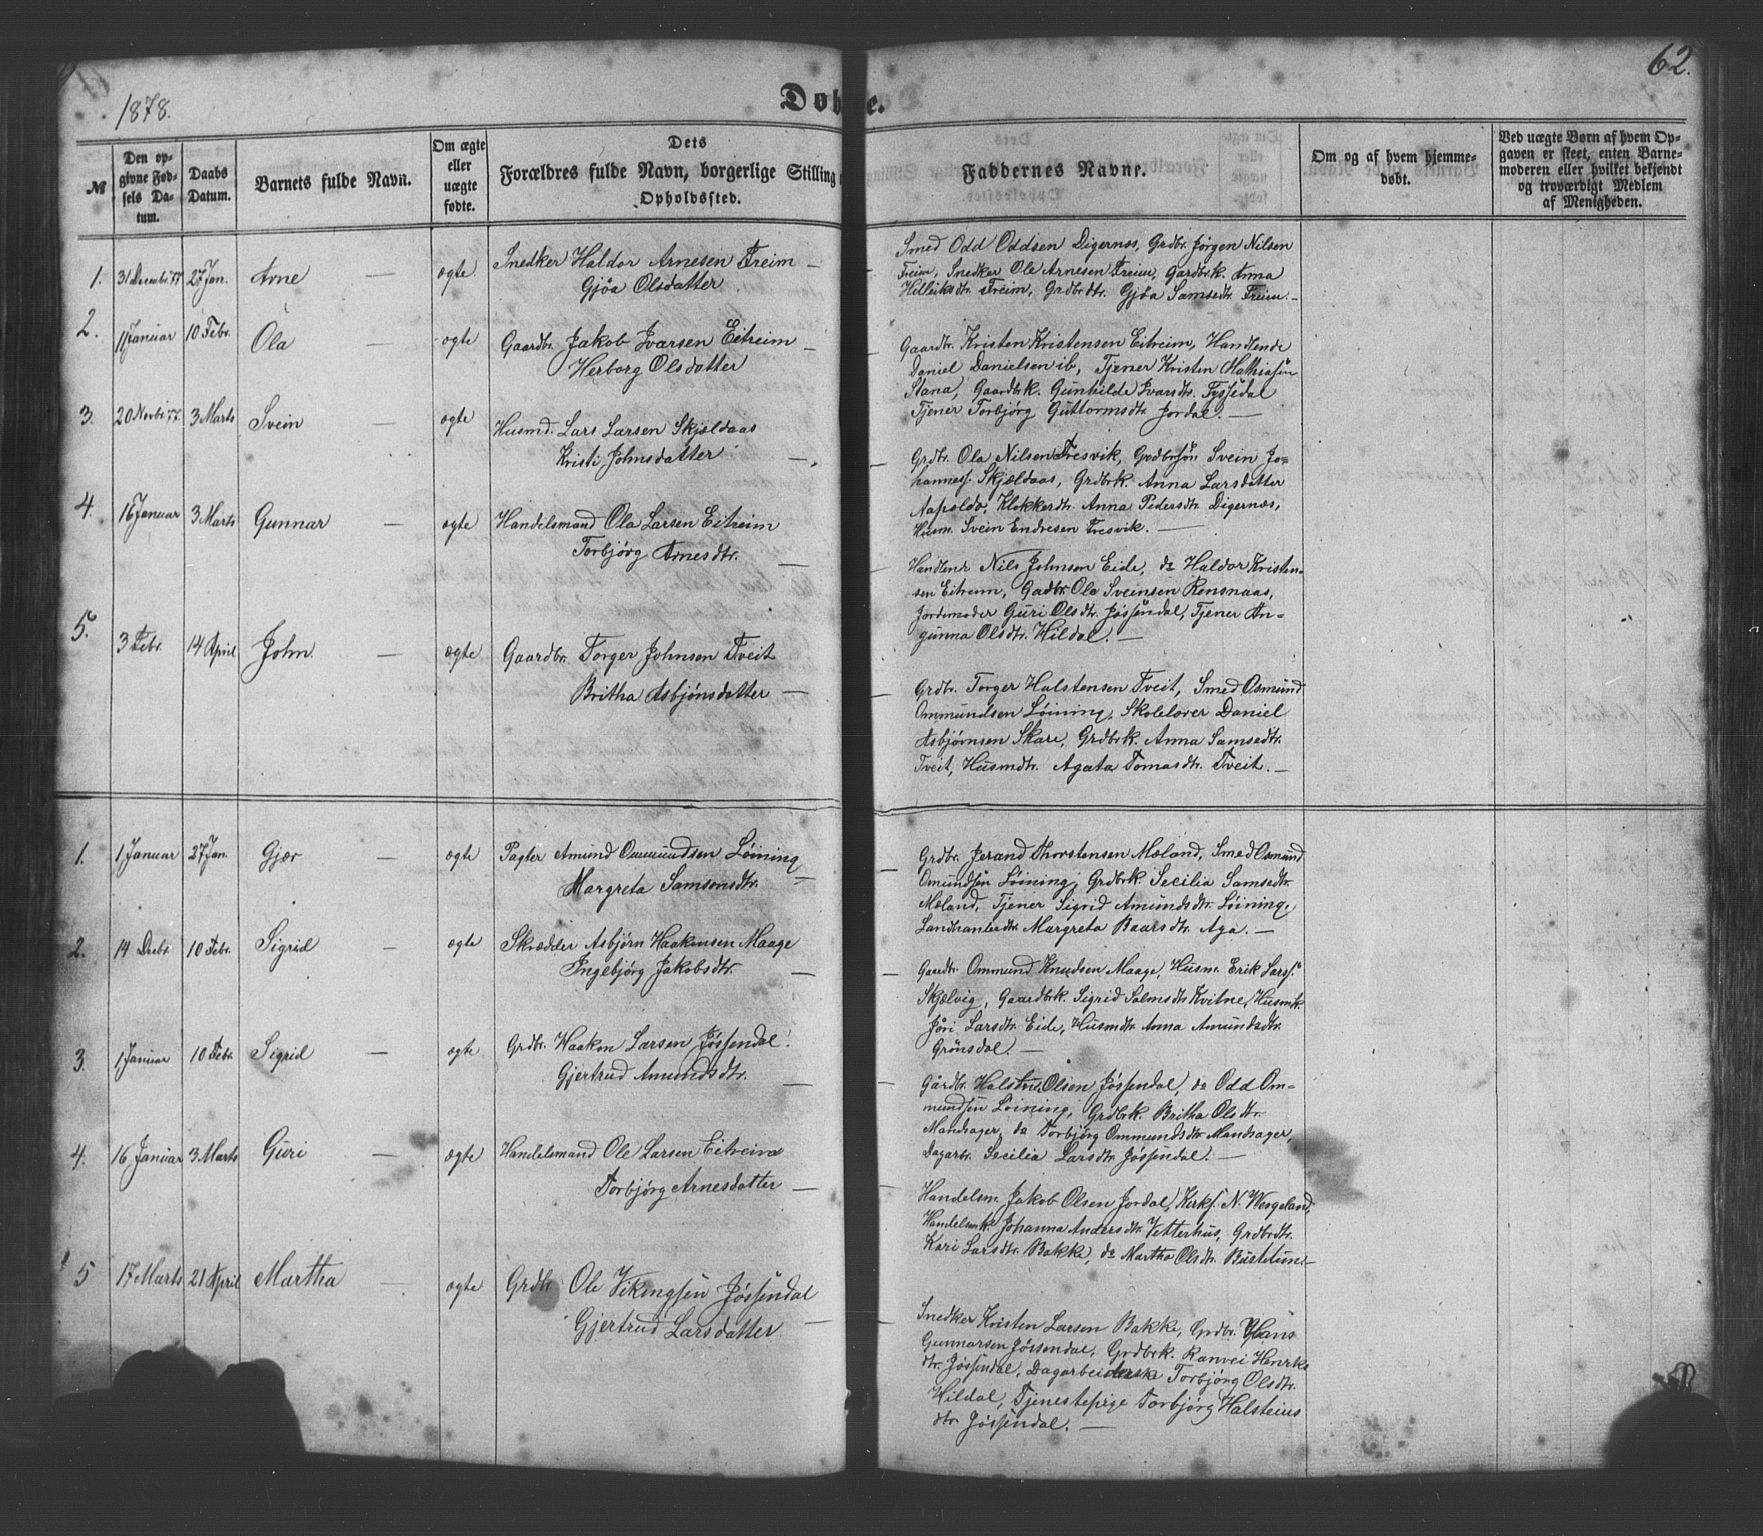 62.
1878.
Døbte.
№
Den opgivne Fødsels Datum.
Daabs Datum.
Barnets fulde Navn.
Om ægte eller uægte fødte.
Dets Forældres fulde Navn, borgerlige Stilling
Opholdssted.
Faddernes Navne.
Om og af hvem hjemmedøbt.
Ved uægte Børn af hvem Opgaven er skeet, enten Barnemoderen eller hvilket bekjendt og troværdigt Medlem af Menigheden.
1. 31 Decembr 77 27 Jan. Arne — ægte Snedker Haldor Arnesen Freim —
Gjøa Olsdatter
Smed Odd Oddsen Digernes, Grdbr. Jørgen Nilsen
Freim, Snedker Ole Arnesen Freim, Gardbrk. Anna
Helleiksdtr. Freim, Grdbrdtr. Gjøa Samsedtr. Freim. —
2. 11 Januar 10 Febr. Ola ægte Gaardbr. Jakob Ivarsen Eitreim —
Herborg Olsdatter
Gaardbr. Kristen Kristensen Eitreim, Handlende
Daniel Danielsen ib, Tjener Kristen Mathiasen
Stana, Gaardbrk. Gunhilde Ivarsdtr. Tyssedal
Tjener Torbjørg Guttormsdtr. Jordal. —
3. 20 Novbr 77. 3 Marts Svein — ægte Husmd. Lars Larsen Skjældaas
Kristi Johnsdatter —
Grdbr. Ola Nilsen Tresvik, Grdbrsøn Svein Jo-
hanness. Skjældaas, Grdbrk. Anna Larsdatter
Aapoldo, Klokkerdtr. Anna Pedersdtr. Digernæs,
Husm. Svein Endresen Tresvik. —
4. 16 Januar 3 Marts Gunnar — ægte Handelsmand Ola Larsen Eitreim
Torbjørg Arnesdtr. —
Handlenr Nils Johnsen Eide, do Haldor Kristen-
sen Eitreim, Gadbr. Ola Sveinsen Rensnaas,
Jordemoder Guri Olsdtr. Jøssendal, Tjener An-
gunna Olsdtr. Hildal. —
5. 3 Febr. 14 April John. — ægte Gaardbr. Torger Johnsen Tveit
Britha Asbjønsdatter —
Grdbr. Torger Halstensen Tveit, Smed Osmund
Ommundsen Løining, Skolelærer Daniel
Asbjørnsen Skare, Grdbrk. Anna Samsedtr.
Tveit, Husmdtr. Agata Tomasdtr. Tveit. —
1. 1 Januar 27 Jan. Gjær — ægte Pagter Amund Ommundsen Løining
Margreta Samsonsdtr. —
Grdbr. Jerand Thorstensen Mæland, Smed Osmund
Omundsen Løining, Grdbrk. Secilia Samsedtr.
Mæland, Tjener Sigrid Amundsdtr. Løining,
Margreta Baarsdtr. Aga. —
2. 14 Decbr 10 Febr. Sigrid — ægte Skrædder Asbjørn Haakensen Maage
Ingebjørg Jakobsdtr. —
Gaardbr. Ommund Knudsen Maage, Husm. Erik Larss.
Skjælvig, Gaardbrk. Sigrid Salmsdtr. Kvitne, Husmk.
Jøri Larsdtr. Eide, Husmdtr. Anna Amundsdtr.
Grønsdal. —
3. 1 Januar 10 Febr. Sigrid — ægte Grdbr. Haakon Larsen Jøssendal.
Gjertrud Amundsdtr. —
Gårdbr. Halsten Olsen Jøssendal, do Odd Om-
mundsen Løining, Grdbrk. Britha Olsdtr.
Mandsager, do Torbjørg Ommundsdtr. Mandsager,
Dagarbr. Secilia Larsdtr. Jøssendal. —
4. 16 Januar 3 Marts Guri — ægte Handelsmand Ole Larsen Eitreim
Torbjørg Arnesdatter —
Handelsm. Jakob Olsen Jordal, Kirks. N. Wergeland,
Handelsmk. Johanna Andersdtr. Vetterhus, Grdbrdtr.
Kari Larsdtr. Bakke, do Martha Olsdtr. Bustetun. —
5 17 Marts 21 April Martha — ægte Grdbr Ole Vikingsen Jøssendal
Gjertrud Larsdatter —
Snedker Kristen Larsen Bakke, Grdbr. Hans
Gunnarsen Jøssendal, Grdbrk. Ranvei Henriks
dtr. Jøssendal, Dagarbeiderske Torbjørg Olsdtr.
Hildal, Tjenestepige Torbjørg Halsteins
dtr. Jøssendal. —